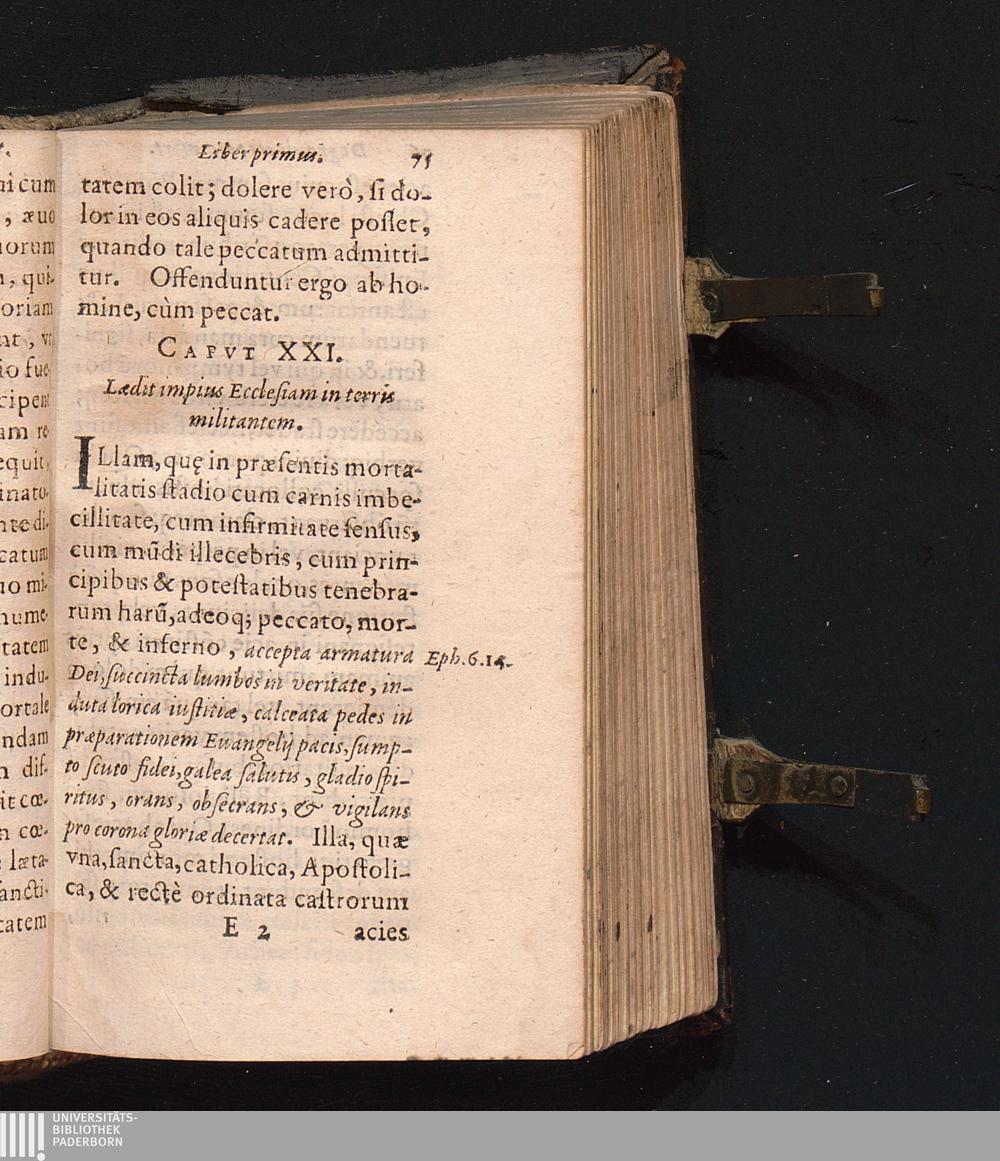 t.
ui cum
, æuo
uorum
n, qui-
oriam
nt, vt
io fue
cipent
am re
equit,
inato-
nte di-
catum
uo mi-
nume-
tatem
indu-
ortale
ndam
n dis-
it cœ-
n cœ-
læta-
ancti-
tatem
Liber primus. 75
tatem colit; dolere verò, ſi do-
lor in eos aliquis cadere poſſet,
quando tale peccatum admitti-
tur. Offenduntur ergo ab ho-
mine, cùm peccat.
CAPVT XXI.
Lædit impius Eccleſiam in terris
militantem.
ILlam, quę in præſentis morta-
litatis ſtadio cum carnis imbe-
cillitate, cum infirmitate ſenſus,
cum mũdi illecebris, cum prin-
cipibus & poteſtatibus tenebra-
rum harũ, adeoq; peccato, mor-
te, & inferno, accepta armatura
Eph. 6. 14.
Dei, ſuccincta lumbos in veritate, in-
duta lorica iuſtitiæ, calceata pedes in
præparationem Euangelij pacis, ſump-
to ſcuto fidei, galea ſalutis, gladio ſpi-
ritus, orans, obſecrans, & vigilans
pro corona gloriæ decertat. Illa, quæ
vna, ſancta, catholica, Apoſtoli-
ca, & rectè ordinata caſtrorum
E 2 acies
UNIVERSITÄTS-
BIBLIOTHEK
PADERBORN